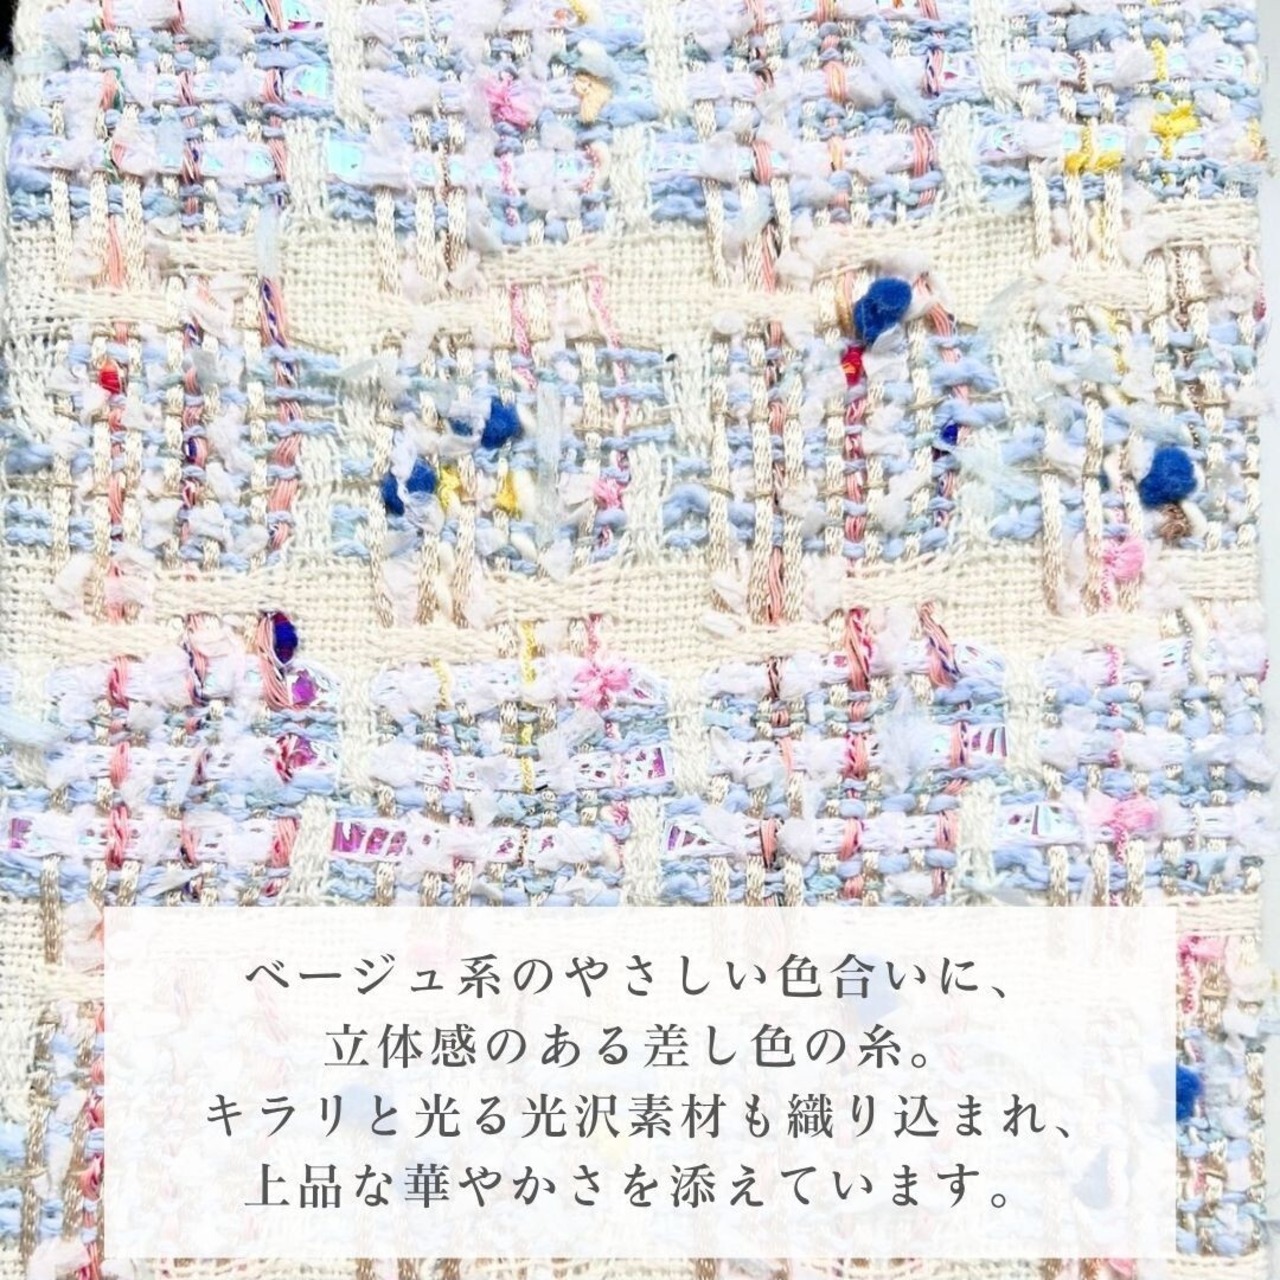 ベージュ系のやさしい色合いに、
立体感のある差し色の糸。
キラリと光る光沢素材も織り込まれ、
上品な華やかさを添えています。